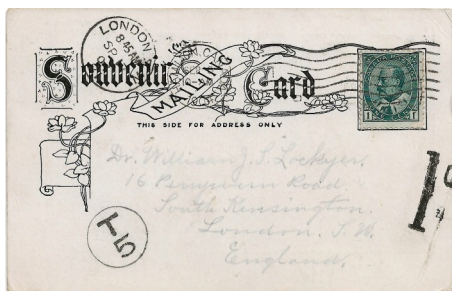 LONDON
Souvenir
MAILING
Card
THIS SIDE FOR ADDRESS ONLY
1 1
Dr. William J. S. Lockyer
16 Penywern Road.
South Kensington.
London. S.W.
England.
T 5